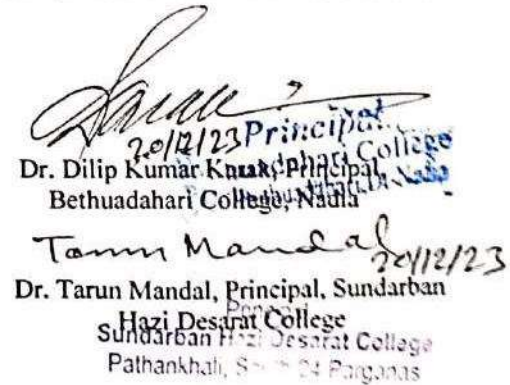 20/12/23 Principal
Bethuadahari College
Dr. Dilip Kumar Principal,
Bethuadahari College, Nadia
Tarun Mandal 20/12/23
Dr. Tarun Mandal, Principal, Sundarban
Hazi Desarat College
Sundarban Hazi Desarat College
Pathankhali, South 24 Parganas